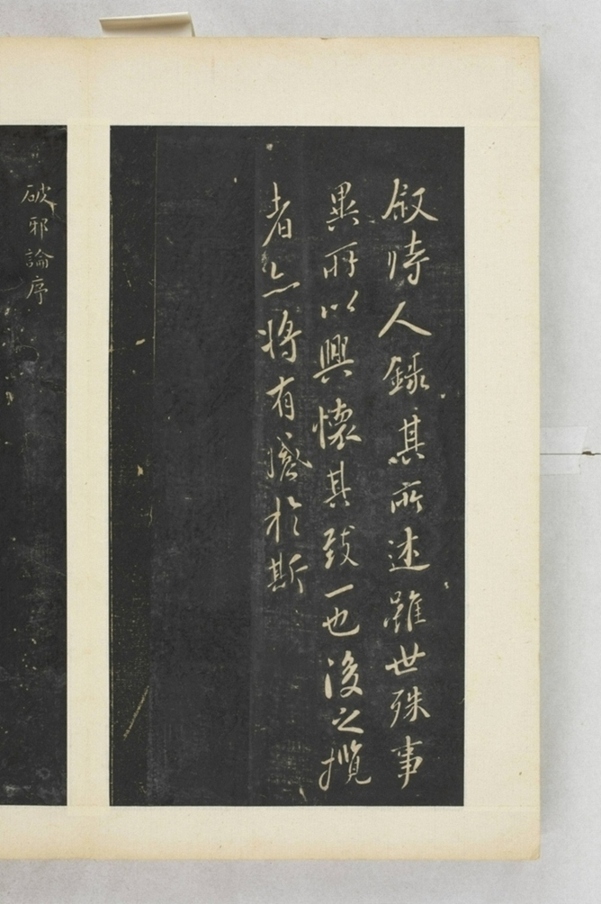 叙時人錄其所述雖世殊事
異所以興懷其致一也後之攬
者亦將有感於斯
破邪論序